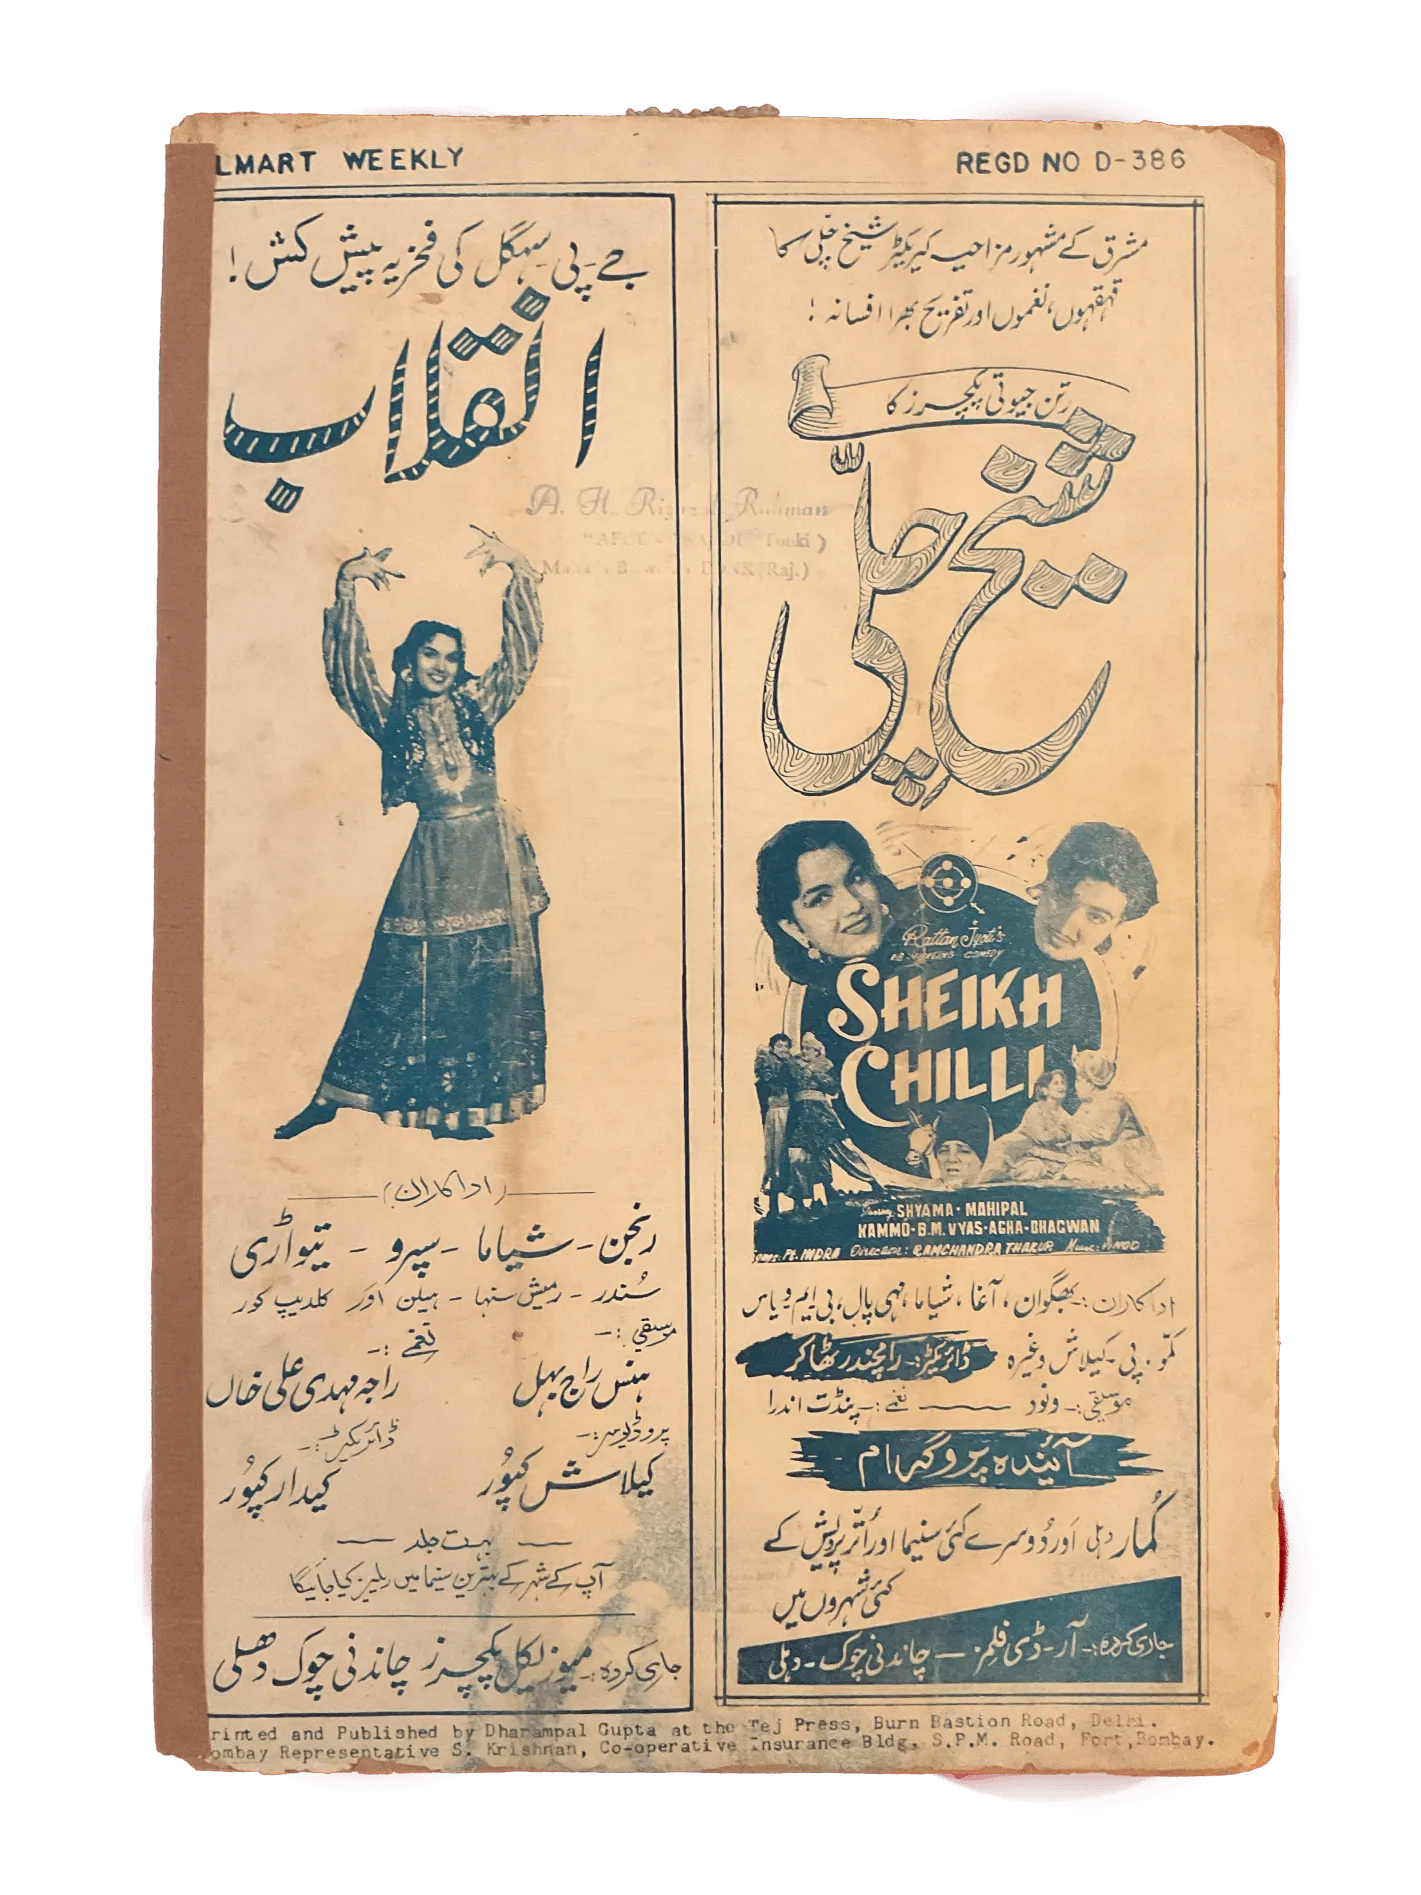 LMART WEEKLY
REGD NO D-386
مشرق کے مشہور مزاحیہ کیریکٹر شیخ چلّی کا
قہقہوں، نغموں اور تفریح بھرا افسانہ !
رتن جیوتی پکچرز کا
شیخ چلّی
Rattan Jyoti's
COMEDY
SHEIKH
CHILLI
Starring SHYAMA - MAHIPAL
KAMMO - B.M. VYAS - AGHA - BHAGWAN
Songs: Pt. INDRA Direction: RAMCHANDRA THAKUR Music: VINOD
اداکاران:۔ بھگوان، آغا، شیاما، مہی پال، بی ایم ویاس
کمّو۔ پی۔ کیلاش وغیرہ ڈائریکٹر:۔ رامچندر ٹھاکر
موسیقی:۔ ونود ــــــ نغمے:۔ پنڈت اندرا
آئندہ پروگرام
کُمار دہلی اور دُوسرے کئی سنیما اور اُتّر پردیش کے
کئی شہروں میں
جاری کردہ:۔ آر۔ ڈی فلمز ــ چاندنی چوک۔ دہلی
جے۔ پی۔ سہگل کی فخریہ پیش کش !
انقلاب
A. H. Rahman
Tonki )
(Raj.)
(اداکاران)
رنجن ۔ شیاما ۔ سپرو ۔ تیواڑی
سُندر ۔ رمیش سنہا ۔ ہیلن اور کلدیپ کور
موسیقی :۔ نغمے :۔
ہنس راج بہل راجہ مہدی علی خاں
پروڈیوسر:۔ ڈائریکٹر:۔
کیلاش کپُور کیدار کپُور
ــ بہت جلد ــ
آپ کے شہر کے بہترین سنیما میں ریلیز کیا جائیگا
جاری کردہ:۔ میوزیکل پکچرز چاندنی چوک دھلی
rinted and Published by Dharampal Gupta at the Tej Press, Burn Bastion Road, Delhi.
ombay Representative S. Krishnan, Co-operative Insurance Bldg, S.P.M. Road, Fort,Bombay.